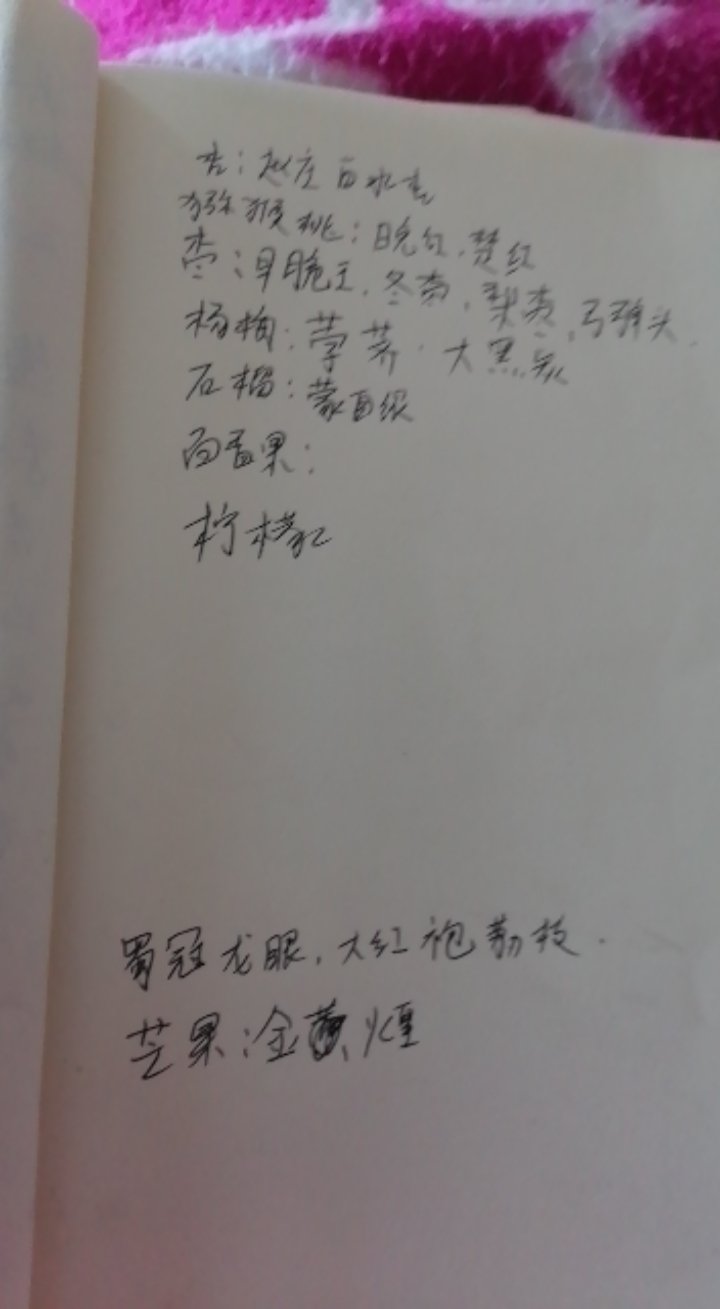 杏:赵庄白水杏
猕猴桃:晚红.楚红
枣:早脆王.冬枣.梨枣.弓弹头.
杨梅:荸荠.大黑炭
石榴:蒙自绿
百香果:
柠檬
蜀冠龙眼.大红袍荔枝.
芒果:金黄煌